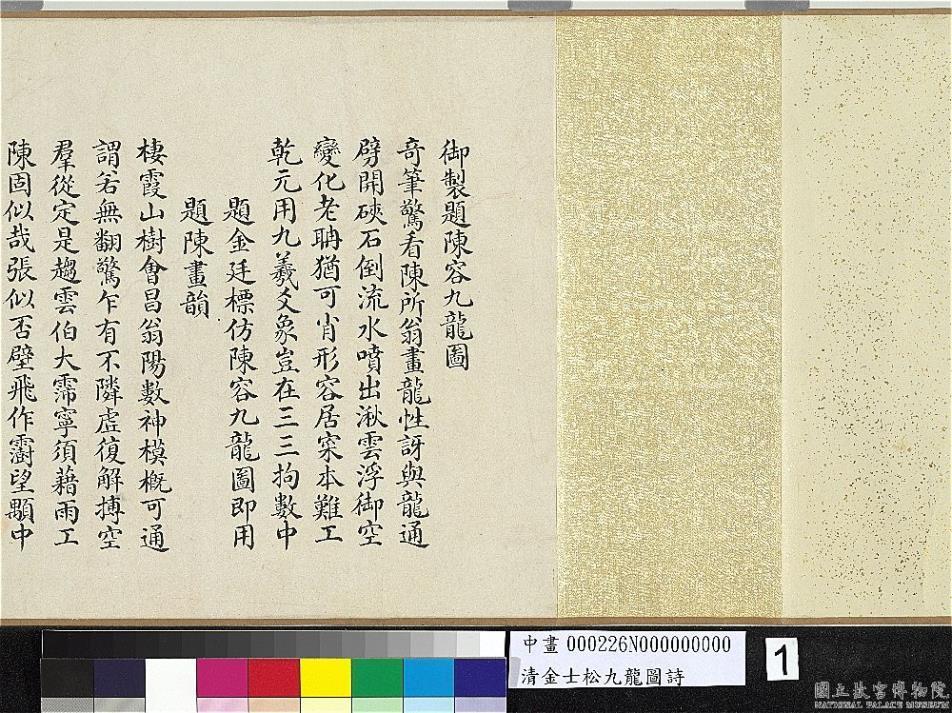 御製題陳容九龍圖
奇筆驚看陳所翁畫龍性訝與龍通
劈開硤石倒流水噴出湫雲浮御空
變化老聃猶可肖形容居寀本難工
乾元用九羲爻象豈在三三拘數中
題金廷標仿陳容九龍圖即用
題陳畫韻
棲霞山樹會昌翁陽數神模概可通
謂若無翻驚乍有不隣虛復解搏空
羣從定是趨雲伯大霈寧須藉雨工
陳固似哉張似否壁飛作澍望顒中
中畫 000226N000000000
清金士松九龍圖詩
1
國立故宮博物院
NATIONAL PALACE MUSEUM